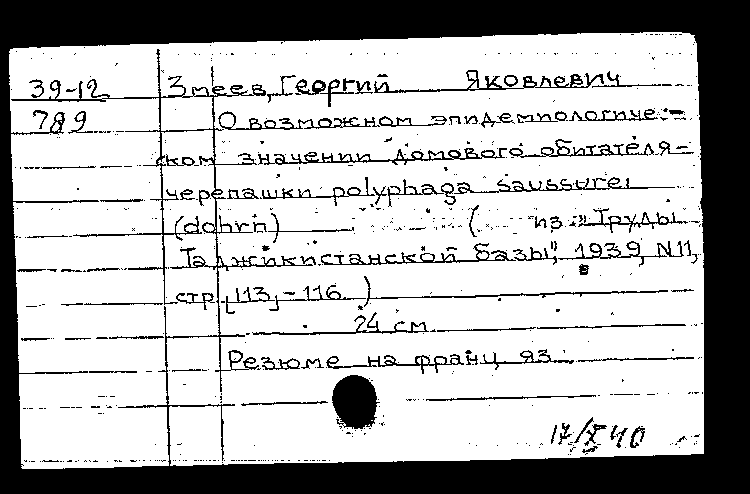 39-12 Змеев, Георгий Яковлевич
789 О возможном эпидемиологиче-
ском значении домового обитателя-
черепашки polyphaga saussurei
(dohrn) ( из „Труды
Таджикистанской базы", 1939, N11,
стр. [113] - 116 )
24 см
Резюме на франц. яз.
17/X 40